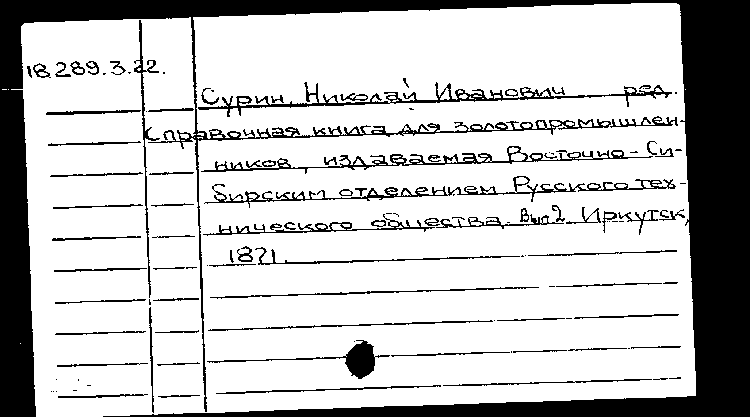 18.289.3.22.
Сурин, Николай Иванович ред.
Справочная книга для золотопромышлен-
ников, издаваемая Восточно-Си-
бирским отделением Русского тех-
нического общества. Вып 2 Иркутск,
1871.